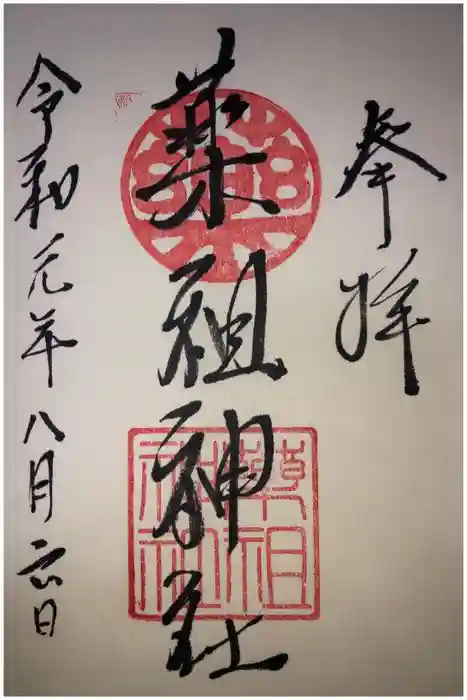 奉拝
薬祖神社
藥
藥祖
神社
令和元年八月六日